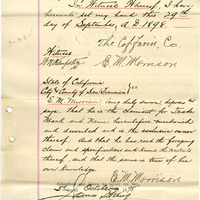 In Witness Whereof, I have
hereunto set my hand this 29th
day of September, A.D. 1898.
The Caffarine Co.
Witness
E. M. Morrison
State of California
City & County of San Francisco } ss
E. M. Morrison being duly sworn deposes &
says that he is the Claimant for Trade
Mark and Name hereinbefore mentioned
and described and is the exclusive owner
thereof. And that he has read the foregoing
claim and specifications and knows the contents
thereof, and that the same is true of his
own knowledge.
E. M. Morrison
October